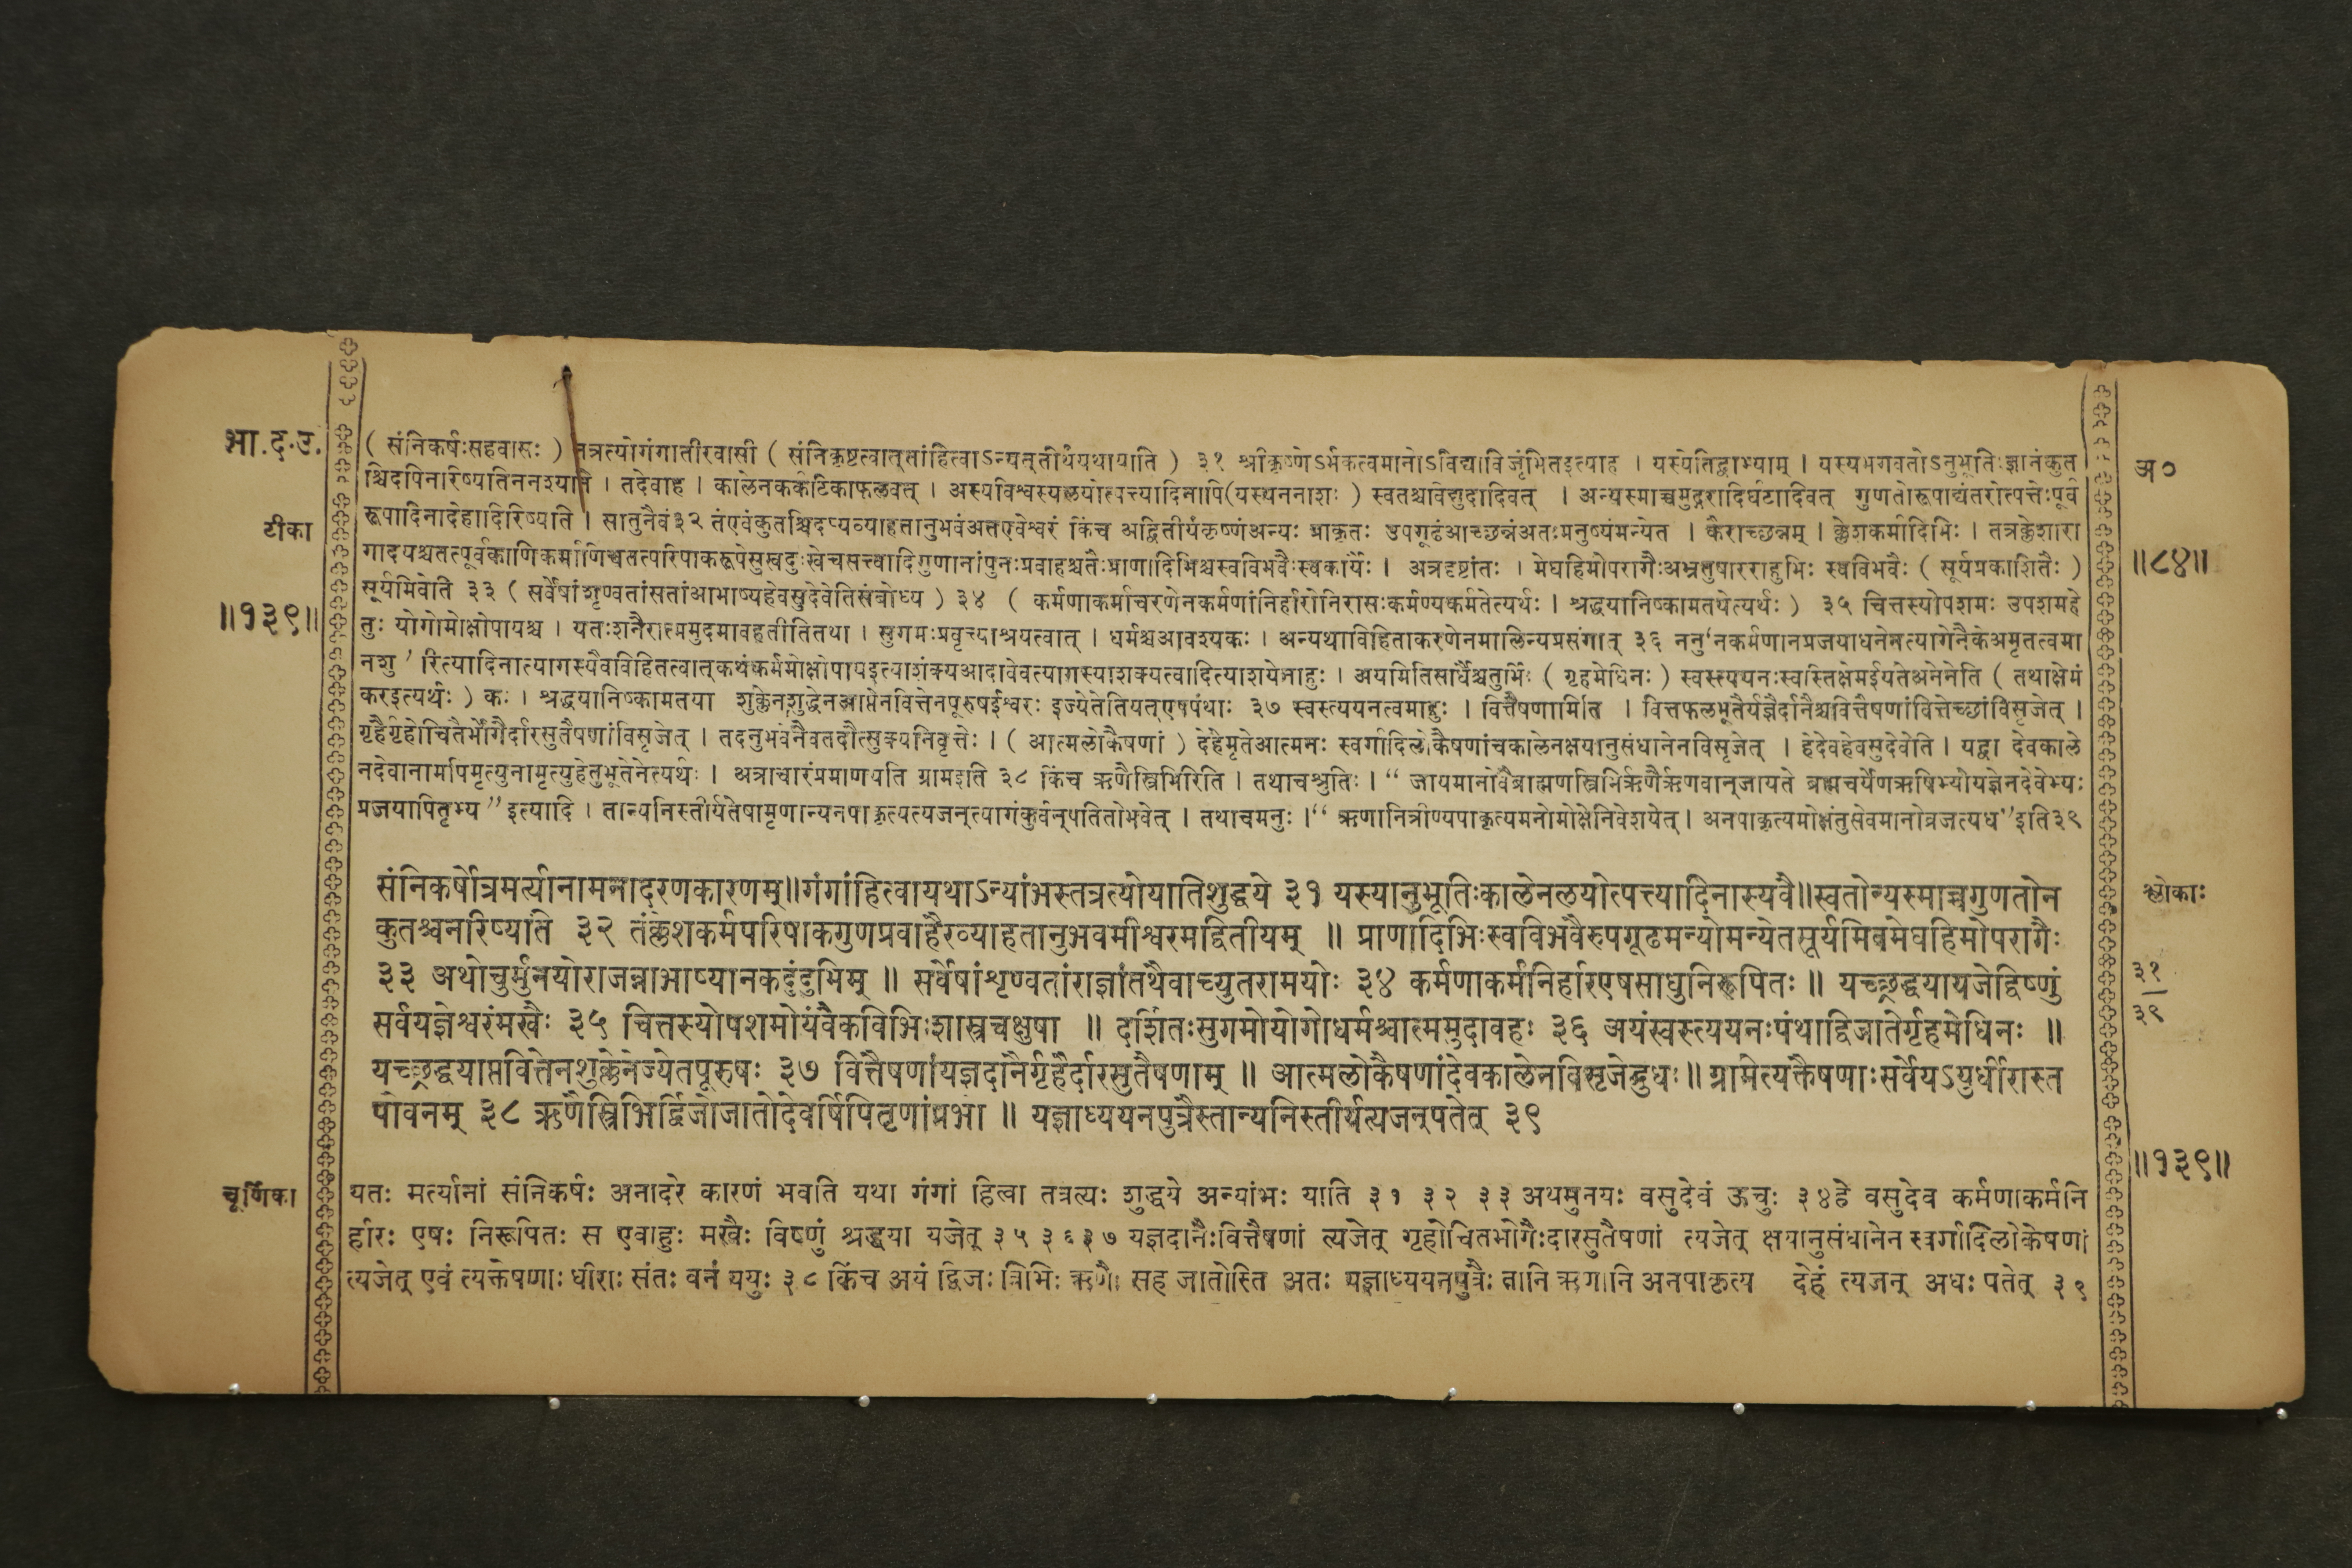 भा.द.उ.
( संनिकर्षःसहवासः ) तत्रत्योगंगातीरवासी ( संनिकृष्टत्वात्तांहित्वाऽन्यत्तीर्थंयथायाति ) ३१ श्रीकृष्णेऽर्भकत्वमानोऽविद्याविजृंभितइत्याह । यस्येतिद्वाभ्याम् । यस्यभगवतोऽनुभूतिःज्ञानंकुत
अ०
श्चिदपिनारिष्यतिननश्यति । तदेवाह । कालेनकर्कटिकाफलवत् । अस्यविश्वस्यलयोत्पत्त्यादिनापि(यस्यननाशः ) स्वतश्चविद्युदादिवत् । अन्यस्माच्चमुद्गरादिर्घटादिवत् गुणतोरूपाद्यंतरोत्पत्तेःपूर्व
टीका
रूपादिनादेहादिरिष्यति । सातुनैवं३२ तंएवंकुतश्चिदप्यव्याहतानुभवंअतएवेश्वरं किंच अद्वितीयंकृष्णंअन्यः प्राकृतः उपगूढंआच्छन्नंअतःमनुष्यंमन्येत । कैराच्छन्नम् । क्लेशकर्मादिभिः । तत्रक्लेशारा
॥८४॥
गादयश्चतत्पूर्वकाणिकर्माणिचतत्परिपाकरूपेसुखदुःखेचसत्त्वादिगुणानांपुनःप्रवाहश्चतैःप्राणादिभिश्चस्वविभवैःस्वकार्यैः । अत्रदृष्टांतः । मेघहिमोपरागैःअभ्रतुषारराहुभिः स्वविभवैः ( सूर्यप्रकाशितैः )
॥१३९॥
सूर्यमिवेति ३३ ( सर्वेषांशृण्वतांसतांआभाष्यहेवसुदेवेतिसंबोध्य ) ३४ ( कर्मणाकर्माचरणेनकर्मणांनिर्हारोनिरासःकर्मण्यकर्मतेत्यर्थः । श्रद्धयानिष्कामतयेत्यर्थः ) ३५ चित्तस्योपशमः उपशमहे
तुः योगोमोक्षोपायश्च । यतःशनैरात्ममुदमावहतीतितथा । सुगमःप्रवृत्त्याश्रयत्वात् । धर्मश्चआवश्यकः । अन्यथाविहिताकरणेनमालिन्यप्रसंगात् ३६ ननु‘नकर्मणानप्रजयाधनेनत्यागेनैकेअमृतत्वमा
नशु ’ रित्यादिनात्यागस्यैवविहितत्वात्कथंकर्ममोक्षोपायइत्याशंक्यआदावेवत्यागस्याशक्यत्वादित्याशयेनाहुः । अयमितिसार्धैश्चतुर्भिः ( गृहमेधिनः ) स्वस्त्ययनःस्वस्तिक्षेमंईयतेअनेनेति ( तथाक्षेमं
करइत्यर्थः ) कः । श्रद्धयानिष्कामतया शुक्लेनशुद्धेनआप्तेनवित्तेनपूरुषईश्वरः इज्येतेतियत्एषपंथाः ३७ स्वस्त्ययनत्वमाहुः । वित्तैषणामिति । वित्तफलभूतैर्यज्ञैर्दानैश्चवित्तैषणांवित्तेच्छांविसृजेत् ।
गृहैर्गृहोचितैर्भोगैर्दारसुतैषणांविसृजेत् । तदनुभवेनैवतदौत्सुक्यनिवृत्तेः । ( आत्मलोकैषणां ) देहेमृतेआत्मनः स्वर्गादिलोकैषणांचकालेनक्षयानुसंधानेनविसृजेत् । हेदेवहेवसुदेवेति । यद्वा देवकाले
नदेवानामपिमृत्युनामृत्युहेतुभूतेनेत्यर्थः । अत्राचारंप्रमाणयति ग्रामइति ३८ किंच ऋणैस्त्रिभिरिति । तथाचश्रुतिः । “ जायमानोवैब्राह्मणस्त्रिभिर्ऋणैर्ऋणवान्जायते ब्रह्मचर्येणऋषिभ्योयज्ञेनदेवेभ्यः
प्रजयापितृभ्य ” इत्यादि । तान्यनिस्तीर्यतेषामृणान्यनपाकृत्यत्यजन्त्यागंकुर्वन्पतितोभवेत् । तथाचमनुः । “ ऋणानित्रीण्यपाकृत्यमनोमोक्षेनिवेशयेत् । अनपाकृत्यमोक्षंतुसेवमानोव्रजत्यध ” इति३९
संनिकर्षोत्रमर्त्यानामनादरणकारणम्॥गंगांहित्वायथाऽन्यांभस्तत्रत्योयातिशुद्धये ३१ यस्यानुभूतिःकालेनलयोत्पत्त्यादिनास्यवै॥स्वतोन्यस्माच्चगुणतोन
श्लोकाः
कुतश्चनरिष्यति ३२ तंक्लेशकर्मपरिपाकगुणप्रवाहैरव्याहतानुभवमीश्वरमद्वितीयम् ॥ प्राणादिभिःस्वविभवैरुपगूढमन्योमन्येतसूर्यमिवमेघहिमोपरागैः
३३ अथोचुर्मुनयोराजन्नाभाष्यानकदुंदुभिम् ॥ सर्वेषांशृण्वतांराज्ञांतथैवाच्युतरामयोः ३४ कर्मणाकर्मनिर्हारएषसाधुनिरूपितः ॥ यच्छ्रद्धयायजेद्विष्णुं
३१
सर्वयज्ञेश्वरंमखैः ३५ चित्तस्योपशमोयंवैकविभिःशास्त्रचक्षुषा ॥ दर्शितःसुगमोयोगोधर्मश्चात्ममुदावहः ३६ अयंस्वस्त्ययनःपंथाद्विजातेर्गृहमेधिनः ॥
३९
यच्छ्रद्धयाप्तवित्तेनशुक्लेनेज्येतपूरुषः ३७ वित्तैषणांयज्ञदानैर्गृहैर्दारसुतैषणाम् ॥ आत्मलोकैषणांदेवकालेनविसृजेद्बुधः॥ ग्रामेत्यक्तैषणाःसर्वेययुर्धीरास्त
पोवनम् ३८ ऋणैस्त्रिभिर्द्विजोजातोदेवर्षिपितृणांप्रभो ॥ यज्ञाध्ययनपुत्रैस्तान्यनिस्तीर्यत्यजन्पतेत् ३९
॥१३९॥
चूर्णिका
यतः मर्त्यानां संनिकर्षः अनादरे कारणं भवति यथा गंगां हित्वा तत्रत्यः शुद्धये अन्यांभः याति ३१ ३२ ३३ अथमुनयः वसुदेवं ऊचुः ३४हे वसुदेव कर्मणाकर्मनि
र्हारः एषः निरूपितः स एवाहुः मखैः विष्णुं श्रद्धया यजेत् ३५ ३६३७ यज्ञदानैःवित्तैषणां त्यजेत् गृहोचितभोगैःदारसुतैषणां त्यजेत् क्षयानुसंधानेन स्वर्गादिलोकैषणां
त्यजेत् एवं त्यक्तेषणाः धीराः संतः वनं ययुः ३८ किंच अयं द्विजः त्रिभिः ऋणैः सह जातोस्ति अतः यज्ञाध्ययनपुत्रैः तानि ऋणानि अनपाकृत्य देहं त्यजन् अधः पतेत् ३९